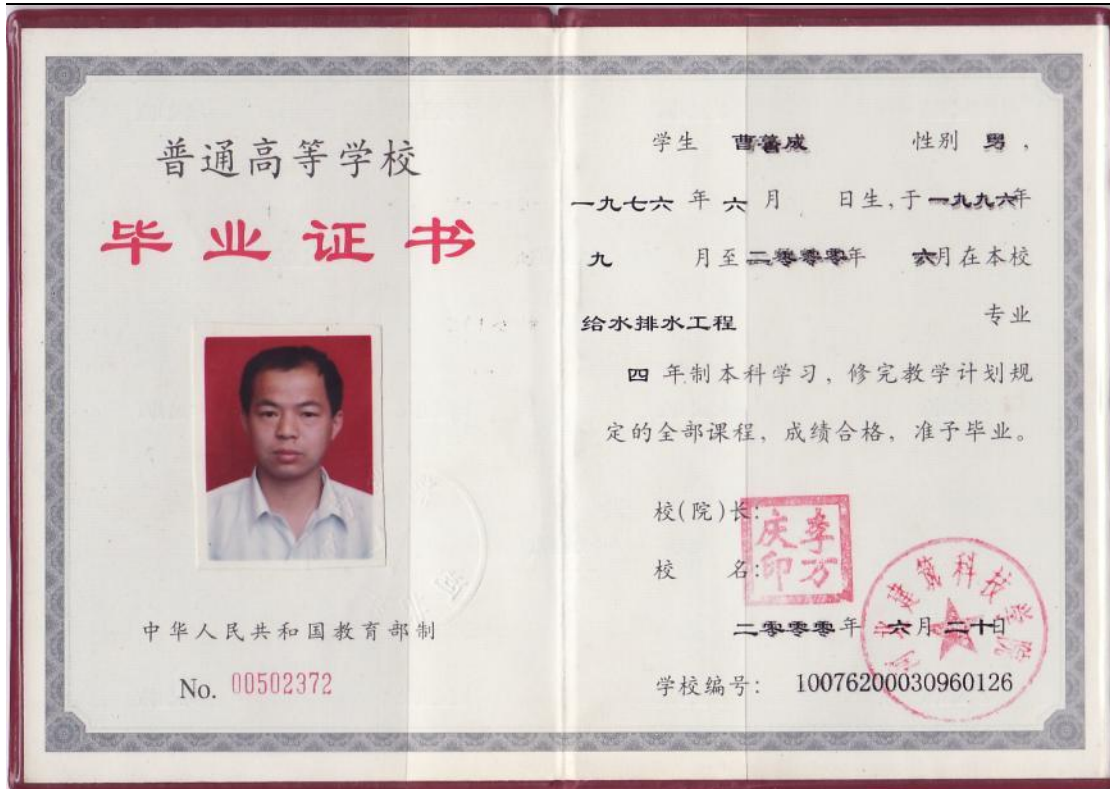 普通高等学校
毕业证书
中华人民共和国教育部制
No. 00502372
学生 曹善成 性别 男，
一九七六 年 六 月 日生，于 一九九六年
九 月至 二零零零年 六月在本校
给水排水工程 专业
四 年制本科学习，修完教学计划规
定的全部课程，成绩合格，准予毕业。
校(院)长：
李万庆印
校 名：
河北建筑科技学院
二零零零年 六月二十日
学校编号： 10076200030960126